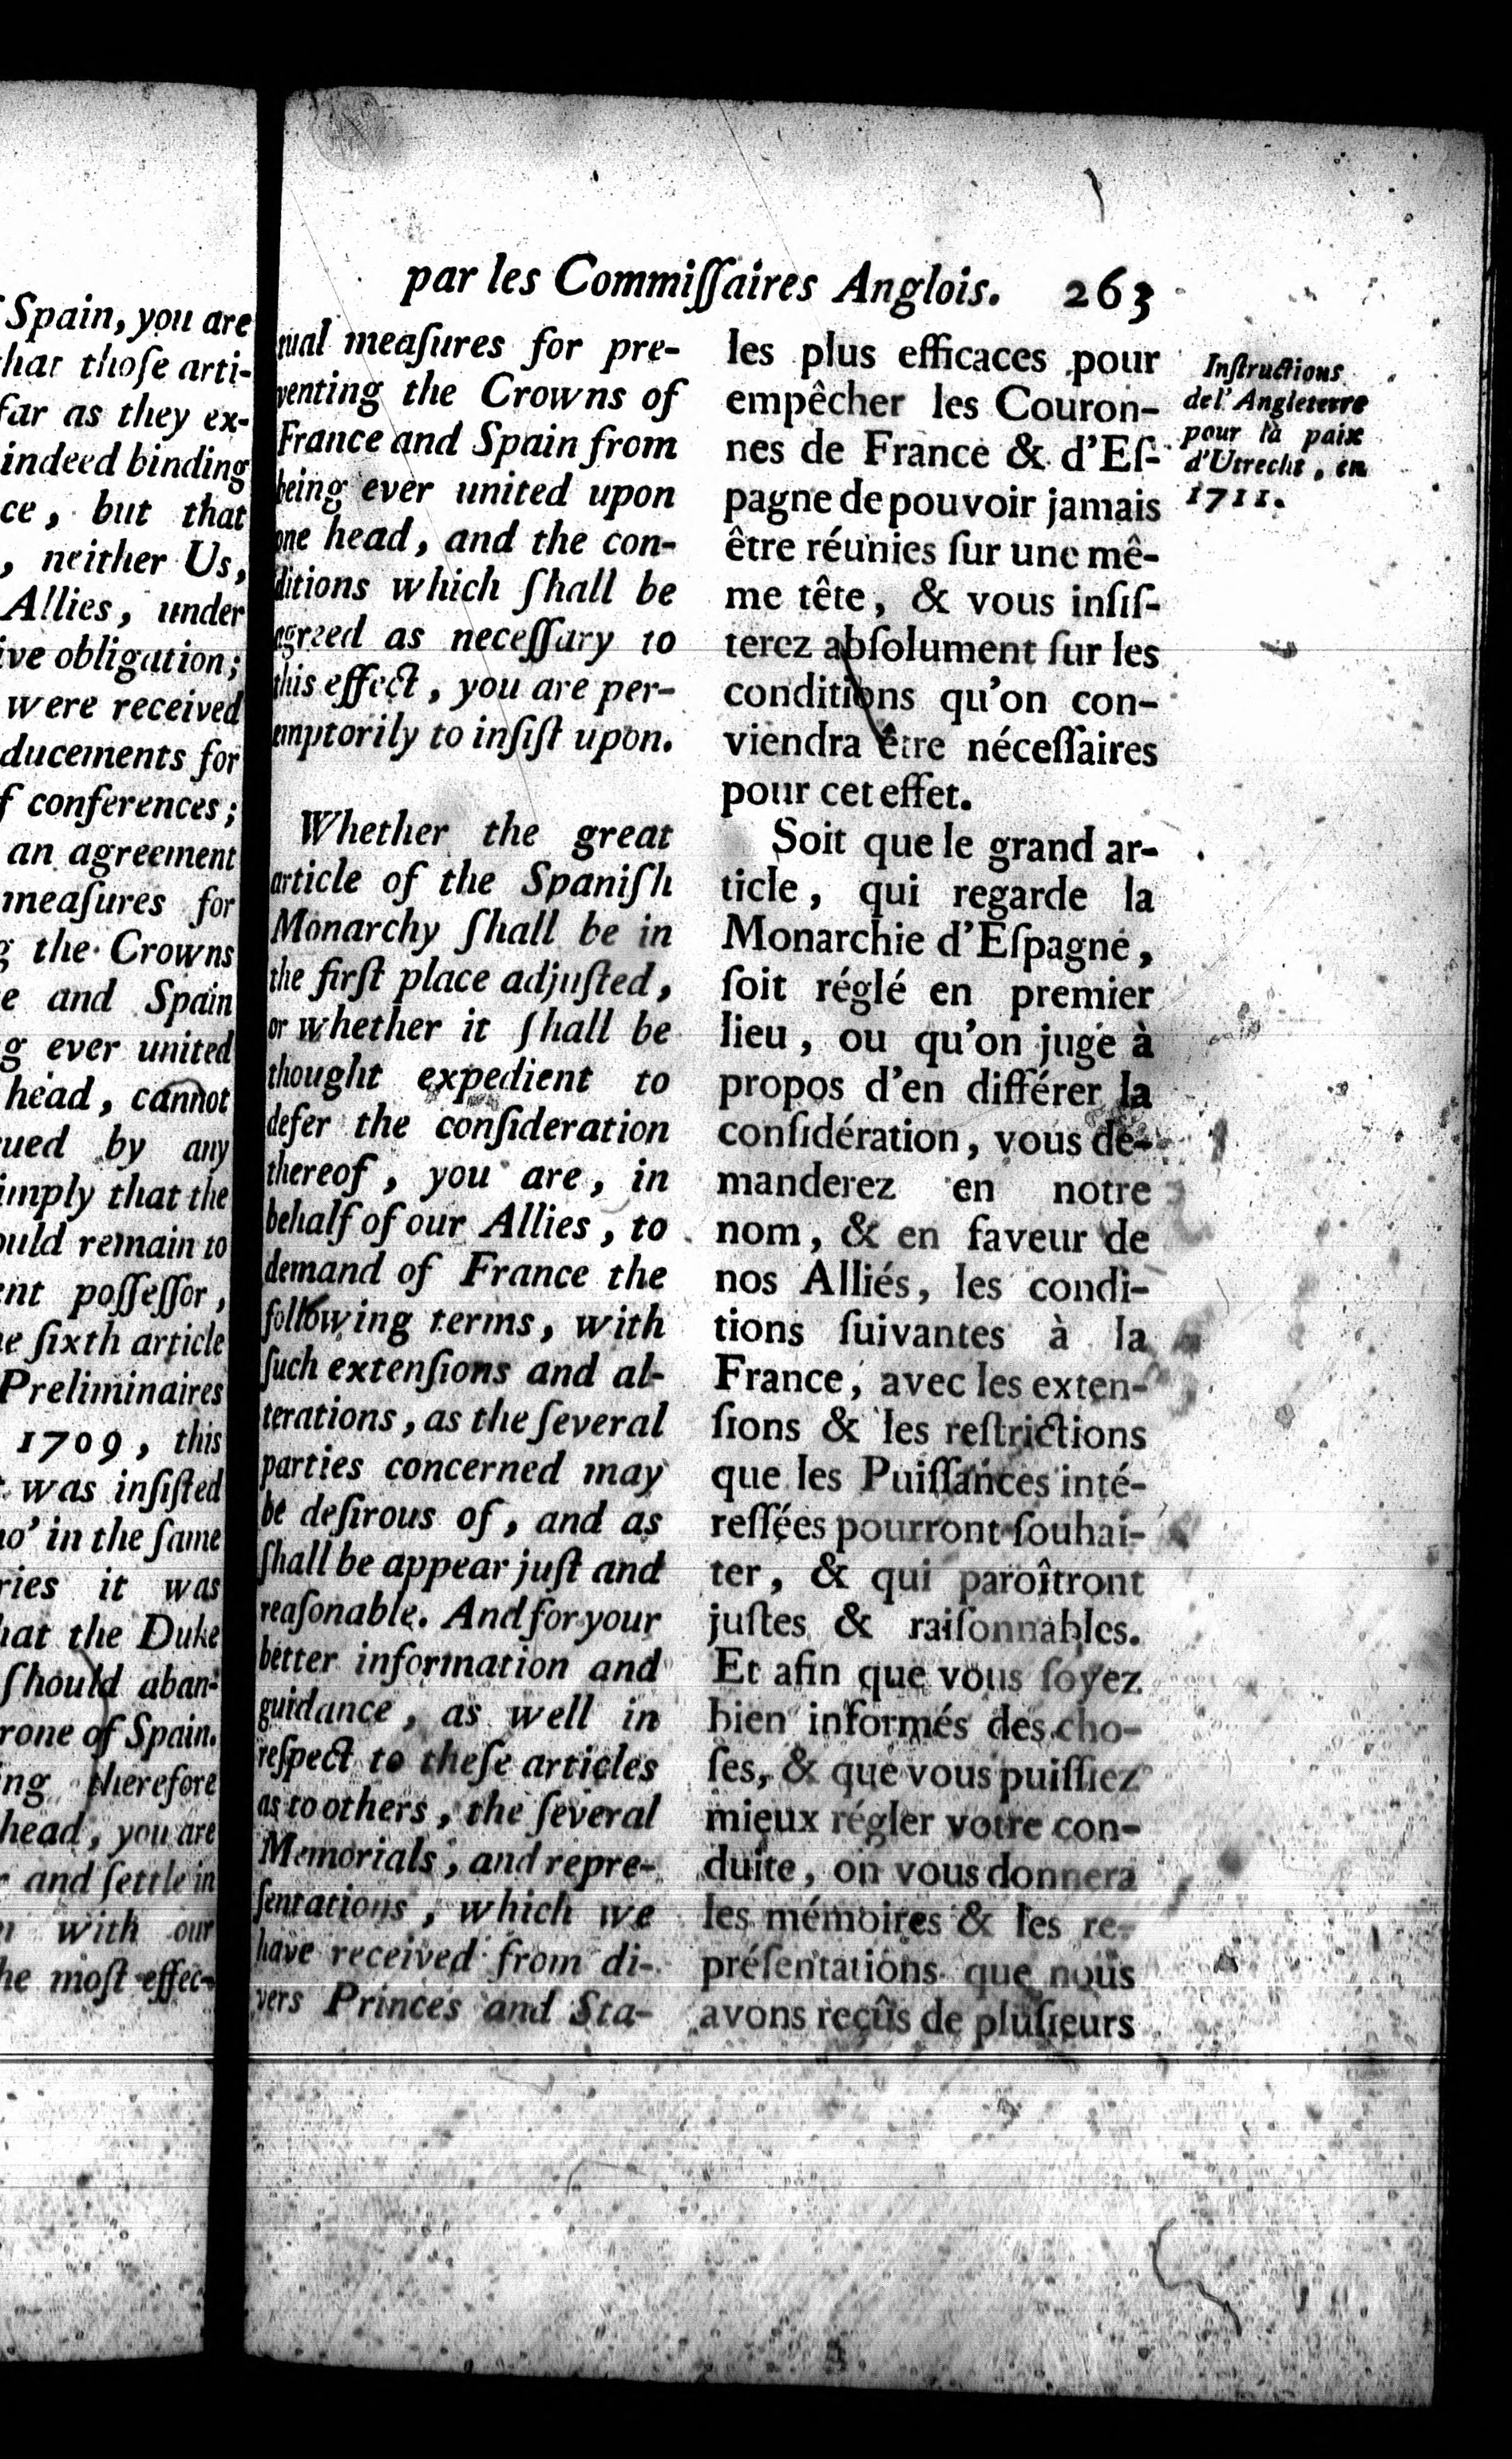 Spain, you are
that those arti-
far as they ex-
indeed binding
ce, but that
, neither Us,
Allies, under
ive obligation;
were received
ducements for
f conferences;
an agreement
measures for
g the Crowns
e and Spain
g ever united
head, cannot
ued by any
imply that the
ould remain to
ent possessor,
e sixth article
Preliminaires
1709, this
was insisted
ho' in the same
ries it was
hat the Duke
should aban-
rone of Spain.
ing therefore
head, you are
r and settle in
n with our
he most effec-
par les Commissaires Anglois. 263
tual measures for pre-
venting the Crowns of
France and Spain from
being ever united upon
one head, and the con-
ditions which shall be
agreed as necessary to
this effect, you are per-
emptorily to insist upon.
Whether the great
article of the Spanish
Monarchy shall be in
the first place adjusted,
or whether it shall be
thought expedient to
defer the consideration
thereof, you are, in
behalf of our Allies, to
demand of France the
following terms, with
such extensions and al-
terations, as the several
parties concerned may
be desirous of, and as
shall be appear just and
reasonable. And for your
better information and
guidance, as well in
respect to these articles
as to others, the several
Memorials, and repre-
sentations, which we
have received from di-
vers Princes and Sta-
les plus efficaces pour
empêcher les Couron-
nes de France & d'Es-
pagne de pouvoir jamais
être réunies sur une mê-
me tête, & vous insis-
terez absolument sur les
conditions qu'on con-
viendra être nécessaires
pour cet effet.
Soit que le grand ar-
ticle, qui regarde la
Monarchie d'Espagne,
soit réglé en premier
lieu, ou qu'on juge à
propos d'en différer la
considération, vous de-
manderez en notre
nom, & en faveur de
nos Alliés, les condi-
tions suivantes à la
France, avec les exten-
sions & les restrictions
que les Puissances inté-
ressées pourront souhai-
ter, & qui paroîtront
justes & raisonnables.
Et afin que vous soyez
bien informés des cho-
ses, & que vous puissiez
mieux régler votre con-
duite, on vous donnera
les mémoires & les re-
présentations que nous
avons reçûs de plusieurs
Instructions
de l'Angleterre
pour la paix
d'Utrecht, en
1711.